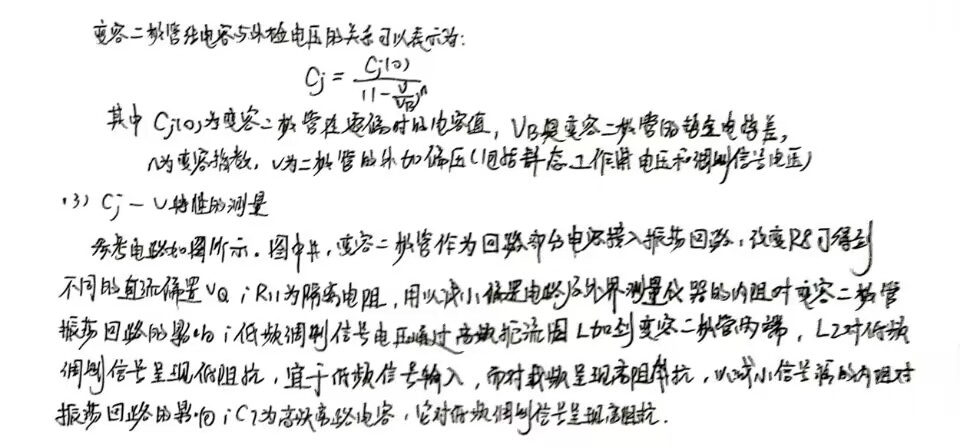 变容二极管结电容与外加电压的关系可以表示为:
Cj = Cj(0) / (1 - V/VB)^n
其中Cj(0)为变容二极管在零偏时的电容值，VB是变容二极管的势垒电势差，
n为变容指数，V为二极管的外加偏压(包括静态工作点电压和调制信号电压)
(3) Cj-V特性的测量
参考电路如图所示。图中，变容二极管作为回路部分电容接入振荡回路，改变R8可得到
不同的直流偏置VQ；R11为隔离电阻，用以减小偏置电路及外界测量仪器的内阻对变容二极管
振荡回路的影响；低频调制信号电压通过高频扼流圈L加到变容二极管两端，L2对低频
调制信号呈现低阻抗，宜于低频信号输入，而对载频呈现高阻抗，以减小信号源的内阻对
振荡回路的影响；C7为高频旁路电容，它对低频调制信号呈现高阻抗.